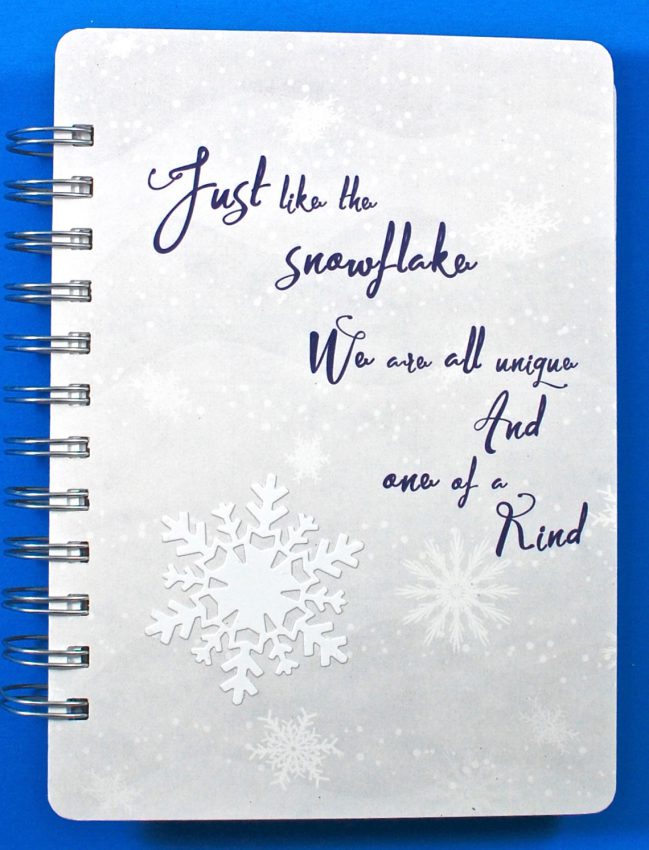 Just like the
snowflake
We are all unique
And
one of a
Kind